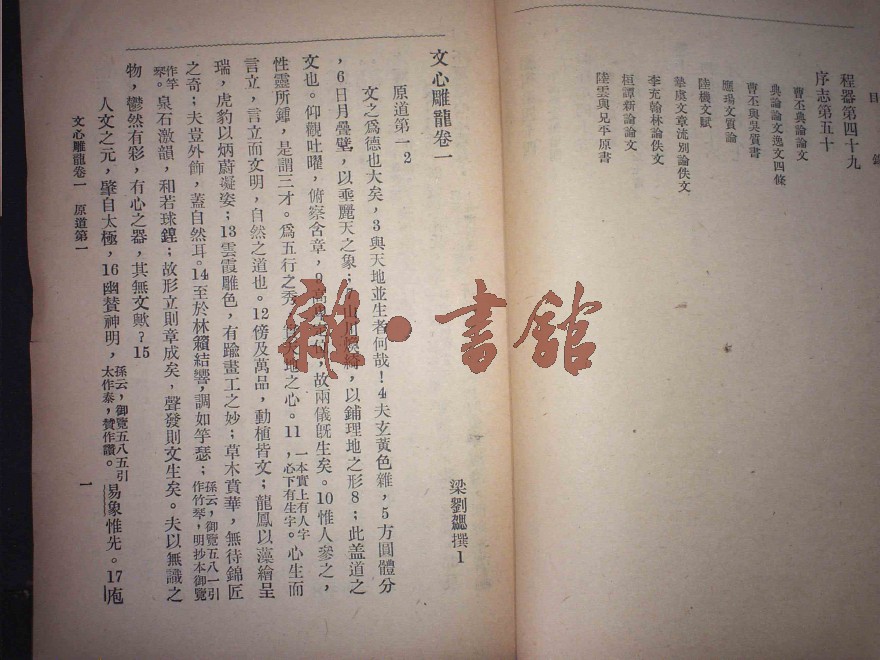 目 錄
程器第四十九
序志第五十
曹丕典論論文
典論論文逸文四條
曹丕與吳質書
應瑒文質論
陸機文賦
摯虞文章流別論佚文
李充翰林論佚文
桓譚新論論文
陸雲與兄平原書
文心雕龍卷一
梁劉勰撰1
原道第一2
文之爲德也大矣,3與天地並生者何哉!4夫玄黃色雜,5方圓體分
,6日月疊璧,以垂麗天之象;山川煥綺,以鋪理地之形8;此蓋道之
文也。仰觀吐曜,俯察含章,9高卑定位,故兩儀旣生矣。10惟人參之,
性靈所鍾,是謂三才。爲五行之秀,天地之心。11一本實上有人字,心下有生字。心生而
言立,言立而文明,自然之道也。12傍及萬品,動植皆文;龍鳳以藻繪呈
瑞,虎豹以炳蔚凝姿;13雲霞雕色,有踰畫工之妙;草木賁華,無待錦匠
之奇;夫豈外飾,蓋自然耳。14至於林籟結響,調如竽瑟;孫云,御覽五八一引作竹琴,明抄本御覽
作竽琴。泉石激韻,和若球鍠;故形立則章成矣,聲發則文生矣。夫以無識之
物,鬱然有彩,有心之器,其無文歟?15
人文之元,肇自太極,16幽贊神明,孫云,御覽五八五引太作泰,贊作讚。易象惟先。17庖
文心雕龍卷一 原道第一
一
雜·書館